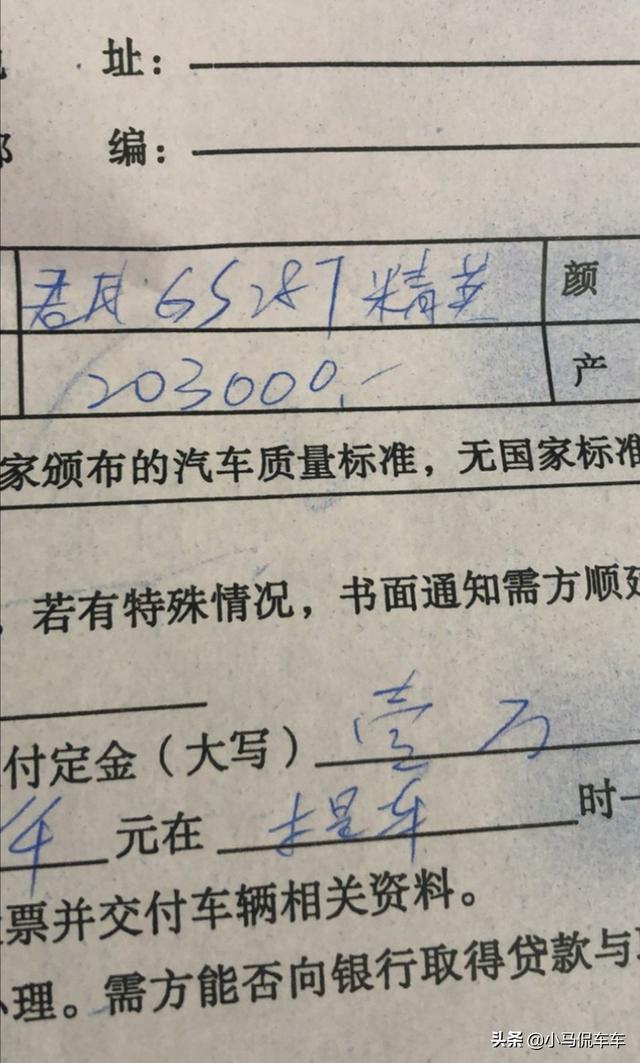 址：
编：
君威 GS 28T 精英 颜
203000.- 产
家颁布的汽车质量标准，无国家标准
，若有特殊情况，书面通知需方顺延
付定金（大写）壹万
元在 提车 时一
票并交付车辆相关资料。
理。需方能否向银行取得贷款与
头条 @小马侃车车